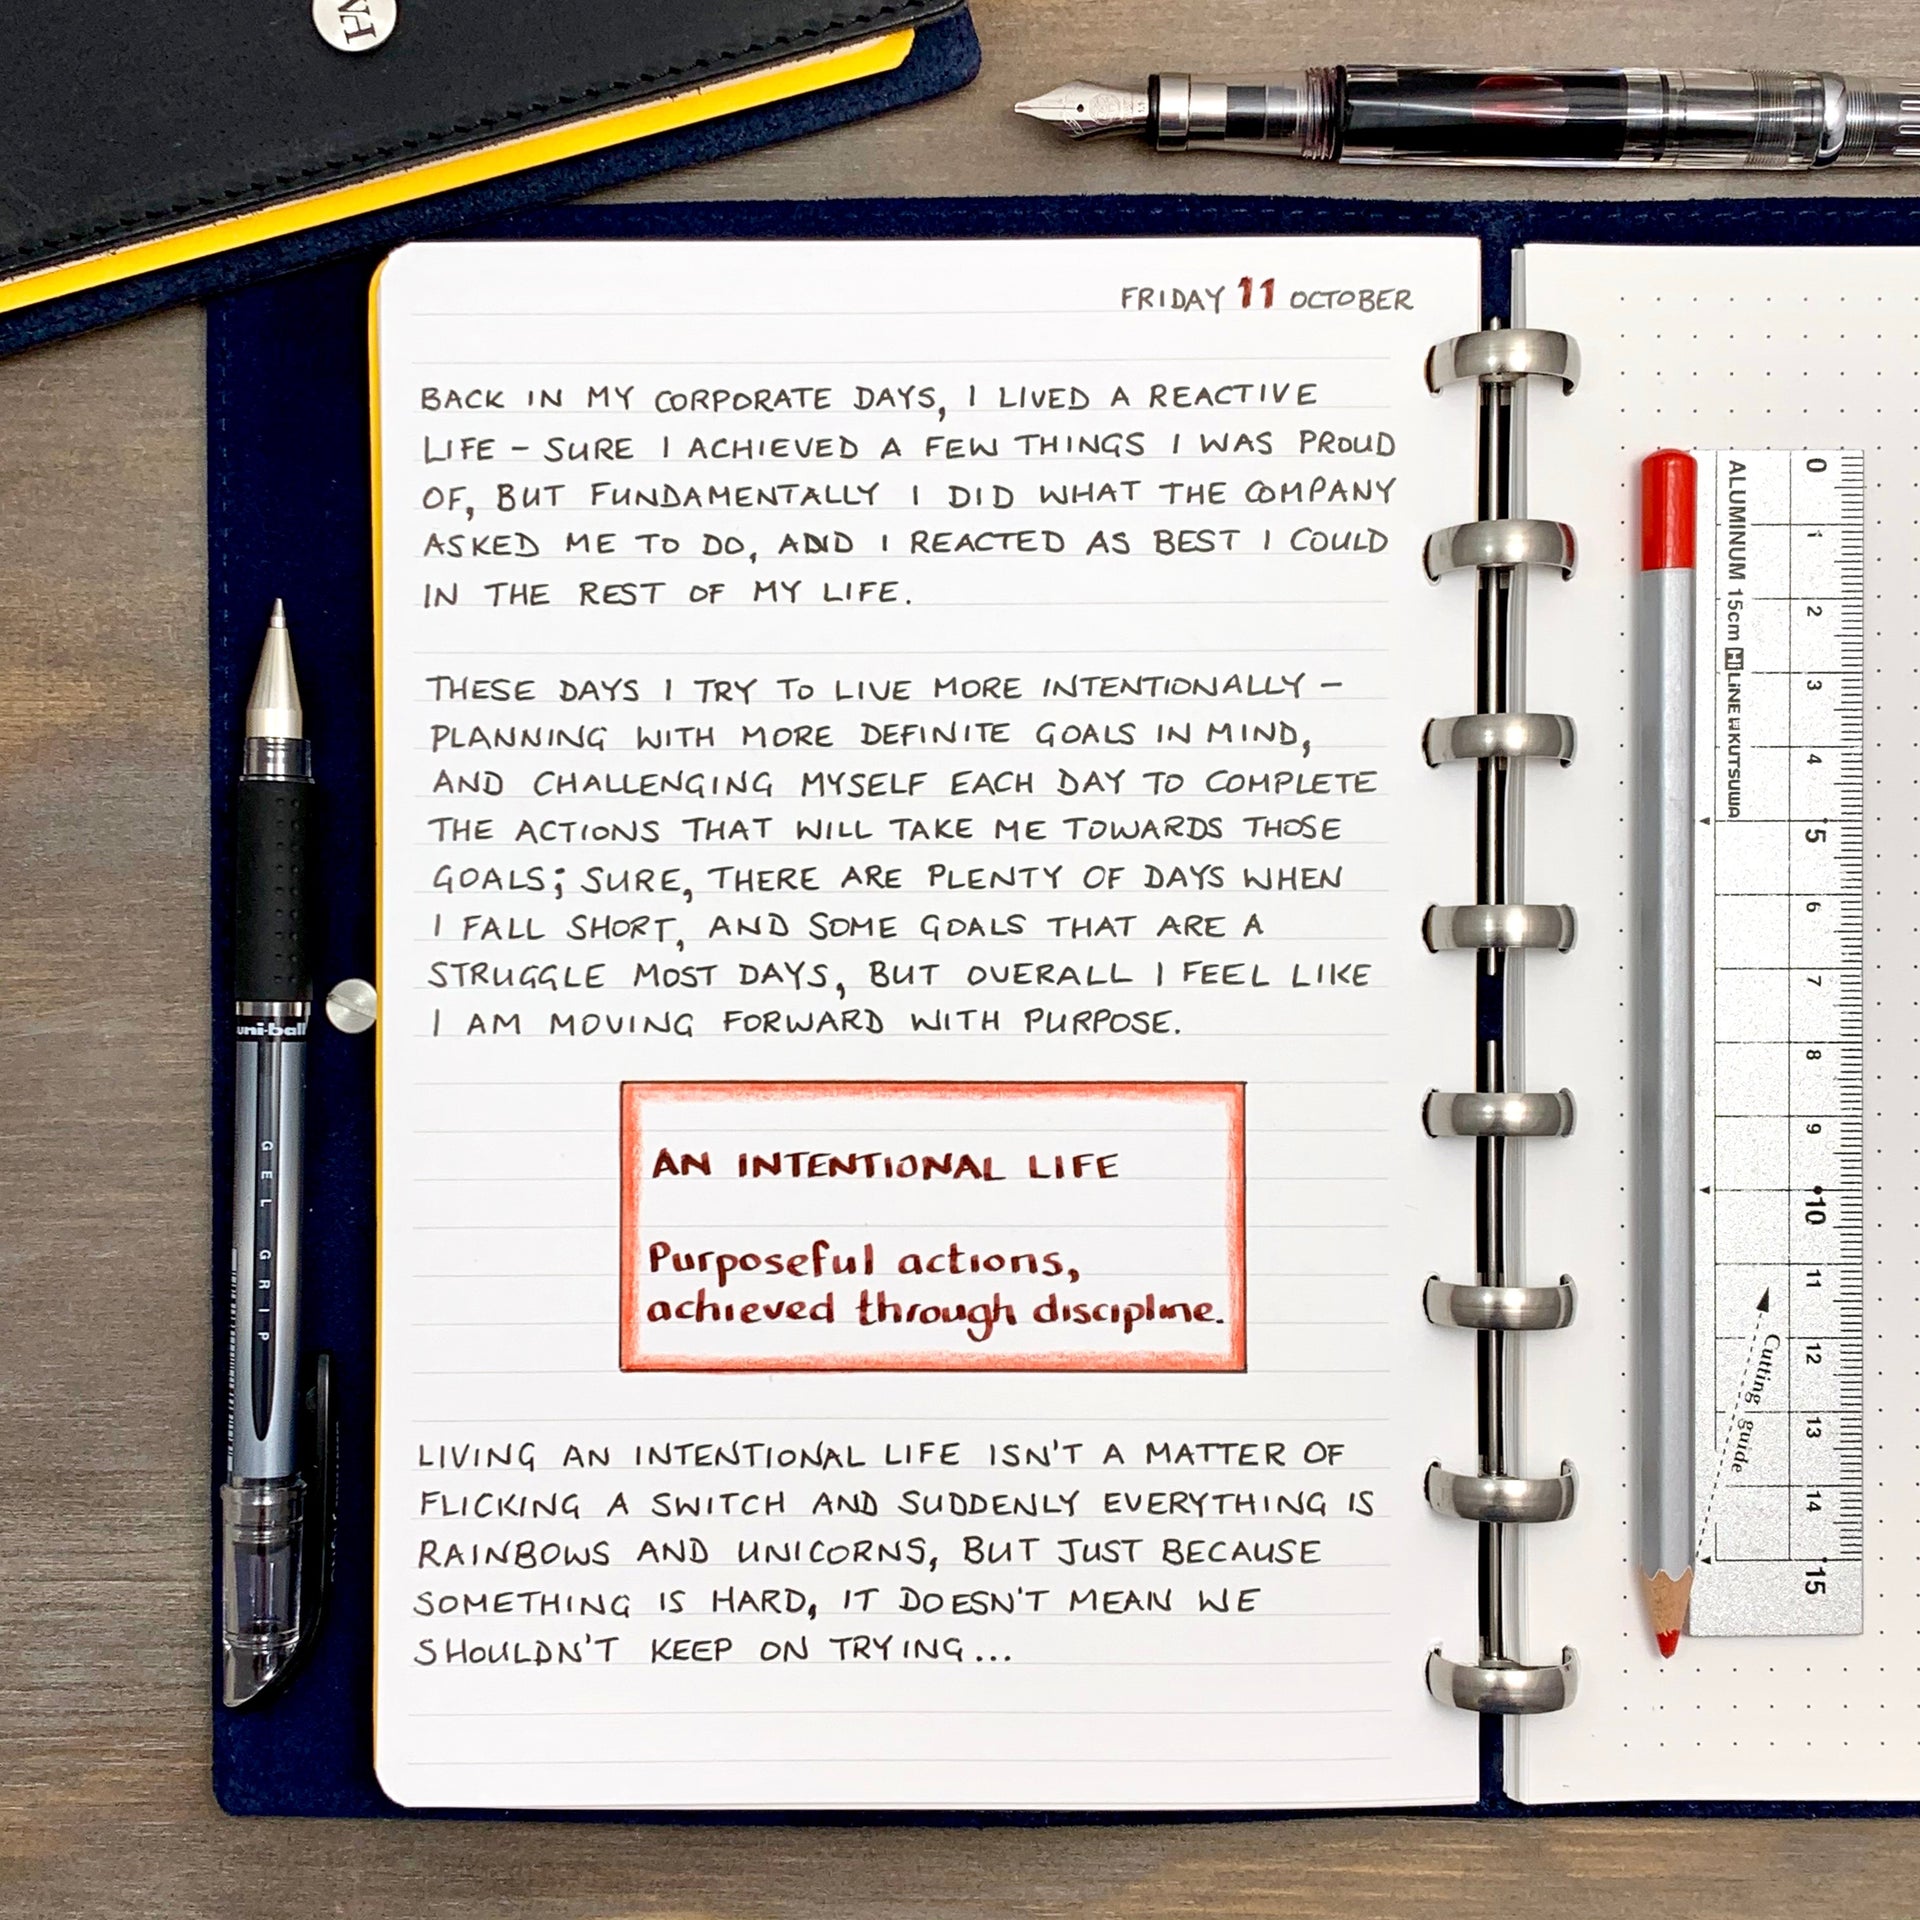 HM
FRIDAY 11 OCTOBER
BACK IN MY CORPORATE DAYS, I LIVED A REACTIVE
LIFE – SURE I ACHIEVED A FEW THINGS I WAS PROUD
OF, BUT FUNDAMENTALLY I DID WHAT THE COMPANY
ASKED ME TO DO, AND I REACTED AS BEST I COULD
IN THE REST OF MY LIFE.
THESE DAYS I TRY TO LIVE MORE INTENTIONALLY –
PLANNING WITH MORE DEFINITE GOALS IN MIND,
AND CHALLENGING MYSELF EACH DAY TO COMPLETE
THE ACTIONS THAT WILL TAKE ME TOWARDS THOSE
GOALS; SURE, THERE ARE PLENTY OF DAYS WHEN
I FALL SHORT, AND SOME GOALS THAT ARE A
STRUGGLE MOST DAYS, BUT OVERALL I FEEL LIKE
I AM MOVING FORWARD WITH PURPOSE.
AN INTENTIONAL LIFE
Purposeful actions,
achieved through discipline.
LIVING AN INTENTIONAL LIFE ISN'T A MATTER OF
FLICKING A SWITCH AND SUDDENLY EVERYTHING IS
RAINBOWS AND UNICORNS, BUT JUST BECAUSE
SOMETHING IS HARD, IT DOESN'T MEAN WE
SHOULDN'T KEEP ON TRYING...
uni-ball
GEL GRIP
ALUMINUM 15cm HiLiNE KUTSUWA
0 1 2 3 4 5 6 7 8 9 10 11 12 13 14 15
Cutting guide